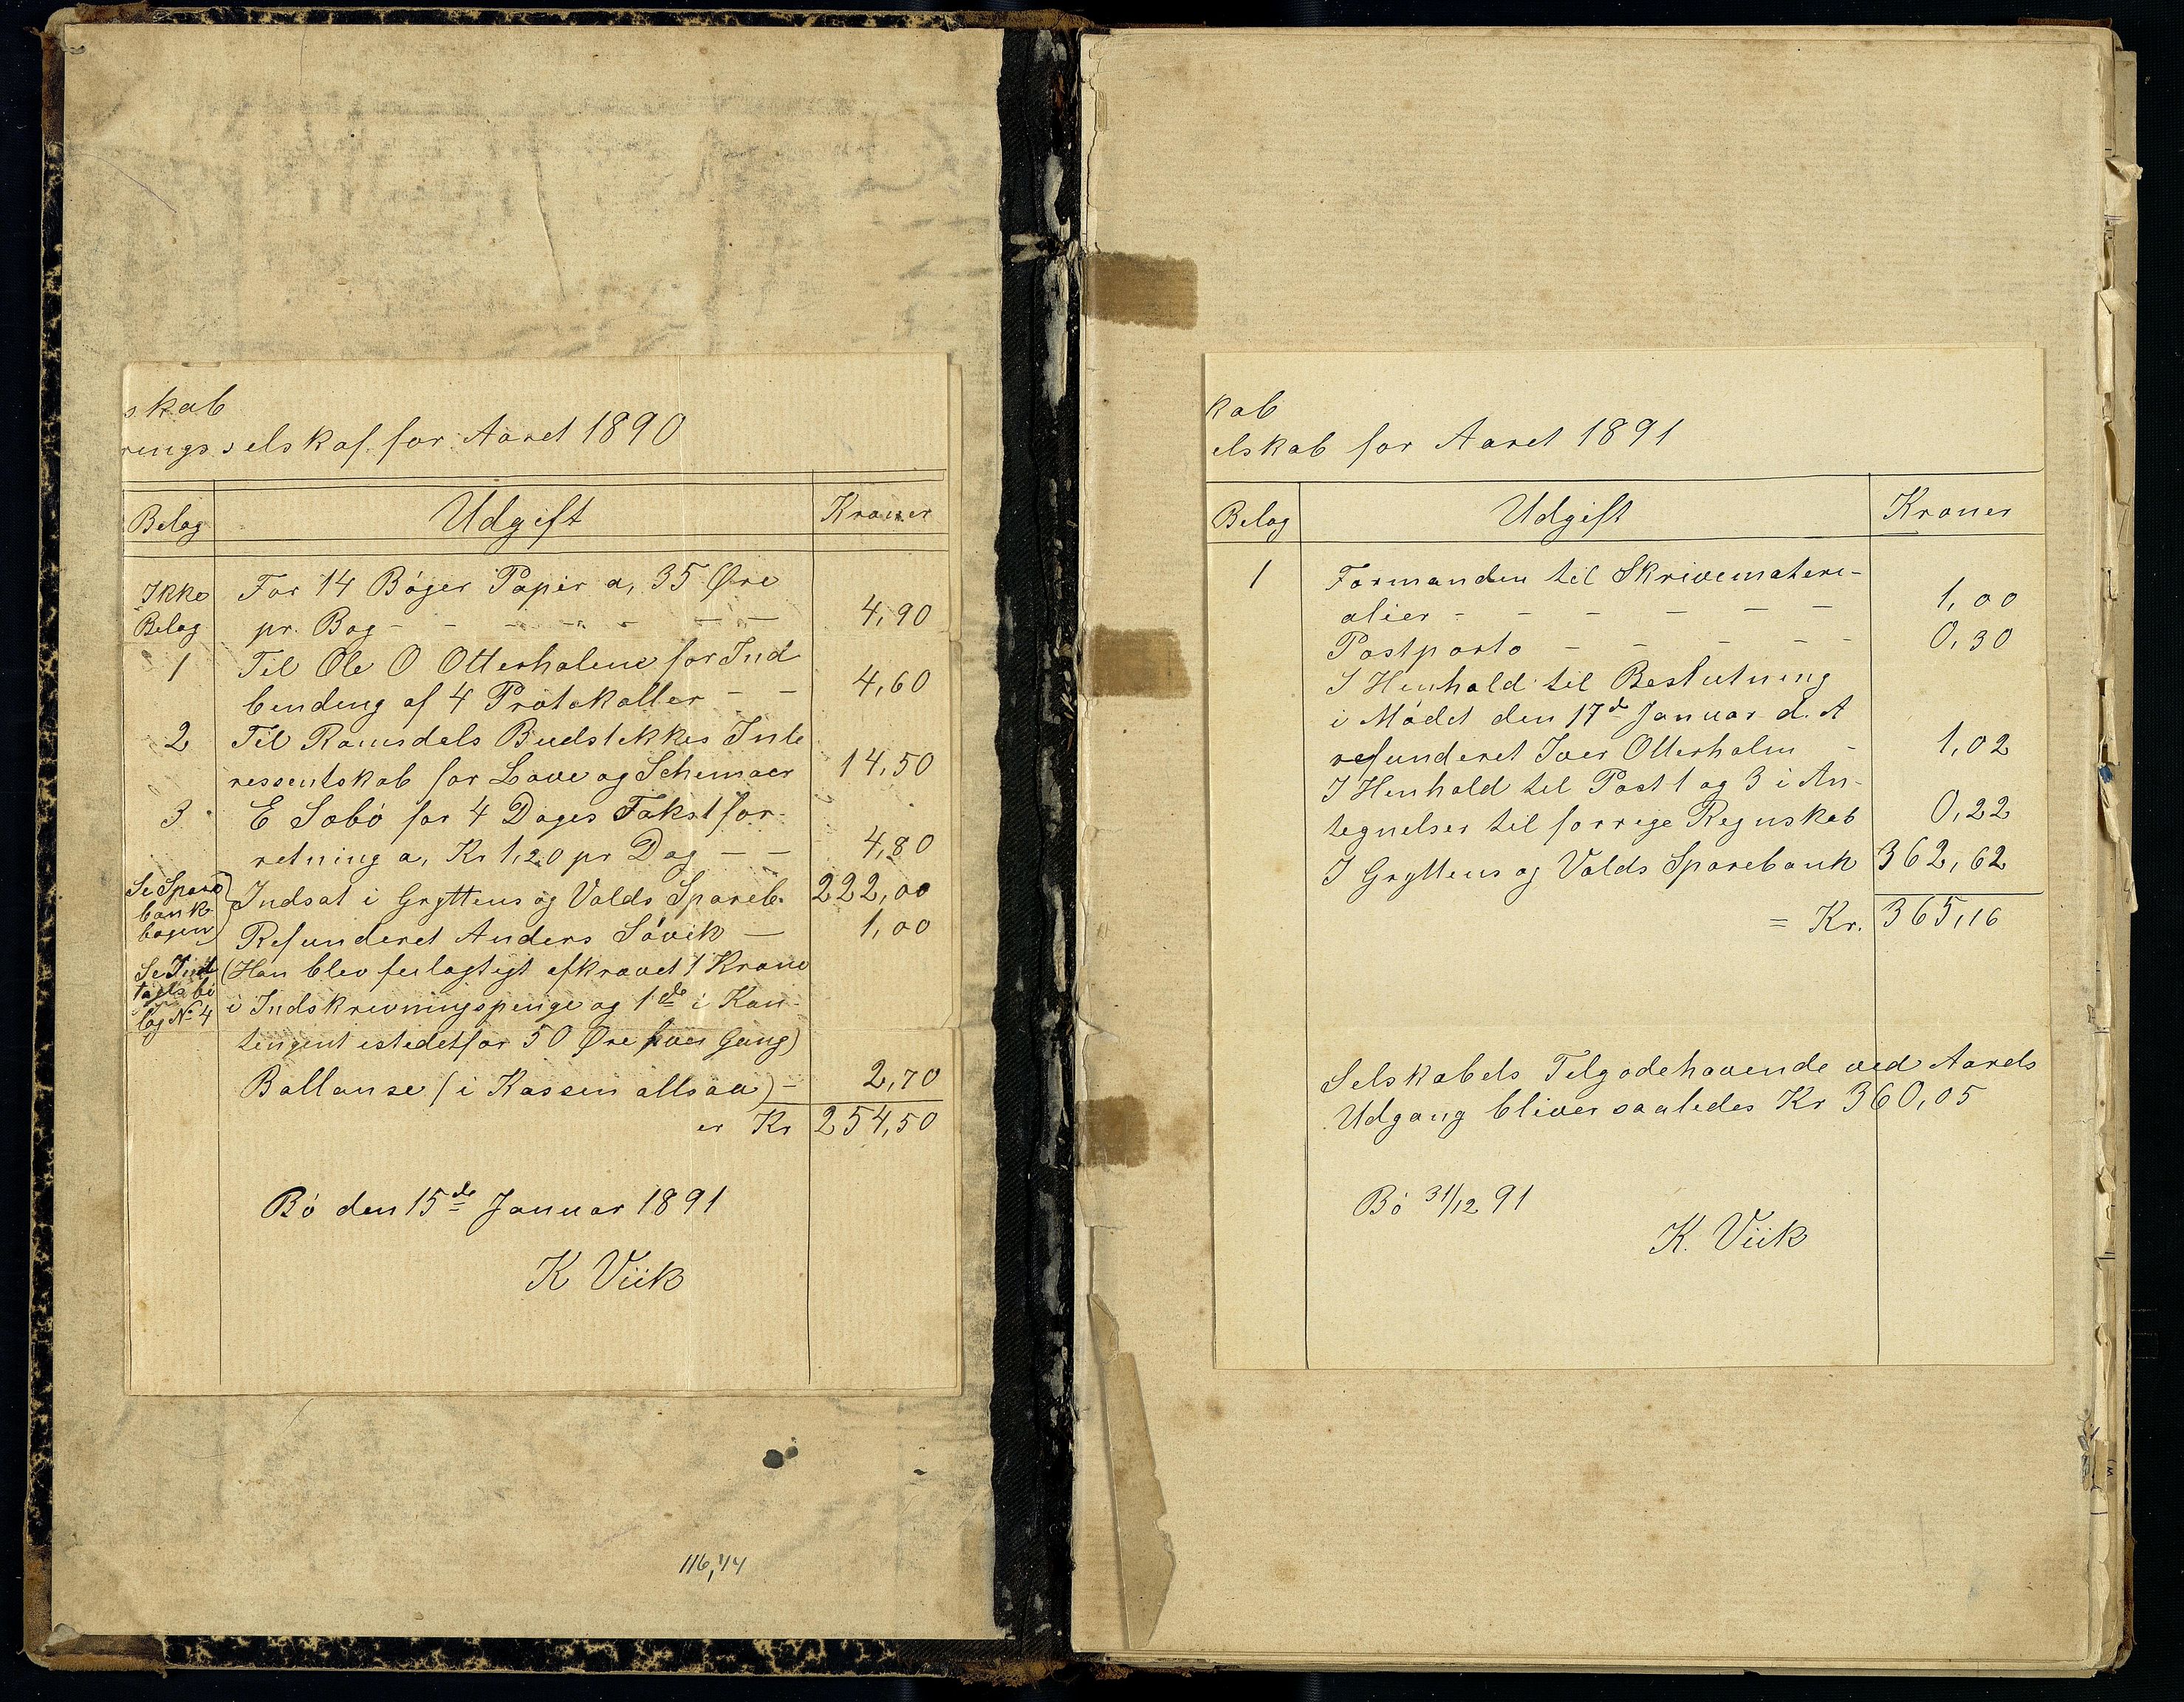 skab
ringsselskab for Aaret 1890
Belag
Udgift
Kroner
Ikke
Belag
For 14 Bøger Papir a, 35 Øre
pr. Bog - - - - - - -
4,90
1
Til Ole O Otterholm for Ind
binding af 4 Protokoller - -
4,60
2
Til Romsdals Budstikkes Inte
ressentskab for Love og Schemaer
14,50
3
E Sæbø for 4 Dages Takstfor-
retning a, Kr 1,20 pr Dag - -
4,80
Se Spare
bank
bogen
Indsat i Gryttens og Volds Spareb.
222,00
Refunderet Anders Søvik -
1,00
Se Ind
tægtsbi
lag № 4
(Han blev feilagtigt afkrævet 1 Krone
i Indskrivningspenge og 1 de i Kon-
tingent istedetfor 50 Øre hver Gang)
Ballanse (i Kassen altsaa) -
2,70
er Kr
254,50
Bø den 15de Januar 1891
K Viik
116,44
kab
elskab for Aaret 1891
Belag
Udgift
Kroner
1
Formanden til Skrivemateri-
alier - - - - - -
1,00
Postporto - - - - -
0,30
I Henhold til Beslutning
i Mødet den 17de Januar d. A
refunderet Iver Otterholm -
1,02
I Henhold til Post 1 og 3 i An-
tegnelser til forrige Regnskab
0,22
I Gryttens og Volds Sparebank
362,62
= Kr.
365,16
Selskabets Tilgodehavende ved Aarets
Udgang bliver saaledes Kr 360,05
Bø 31/12 91
K. Viik